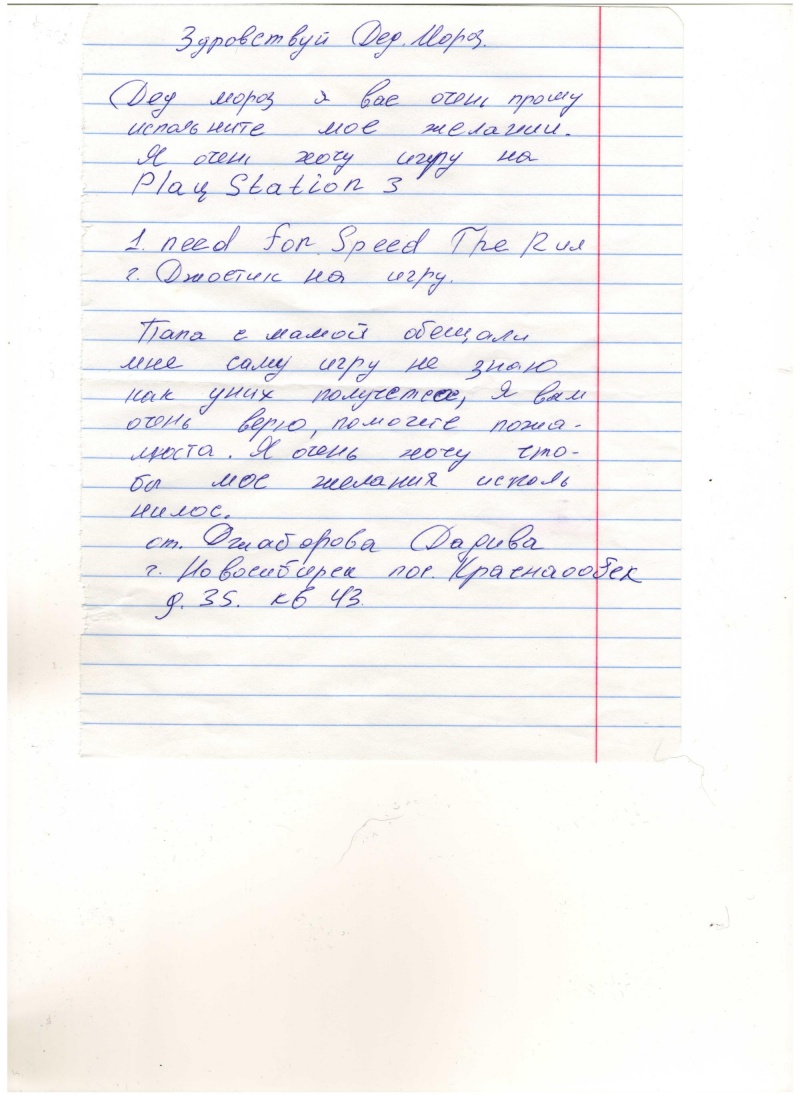 Здравствуй Дед. Мороз.
Дед мороз я вас очень прошу
испольните мое желании.
Я очень хочу игру на
Play Station 3
1. need for Speed The Run
2. Джостик на игру.
Папа с мамой обещали
мне саму игру не знаю
как уних получется, Я вам
очень верю, помогите пожа-
люста. Я очень хочу что-
бы мое желания исполь
нилос.
от. Джаборова Далива
г. Новосибирск пос. Краснаообск
д. 35. кв 43